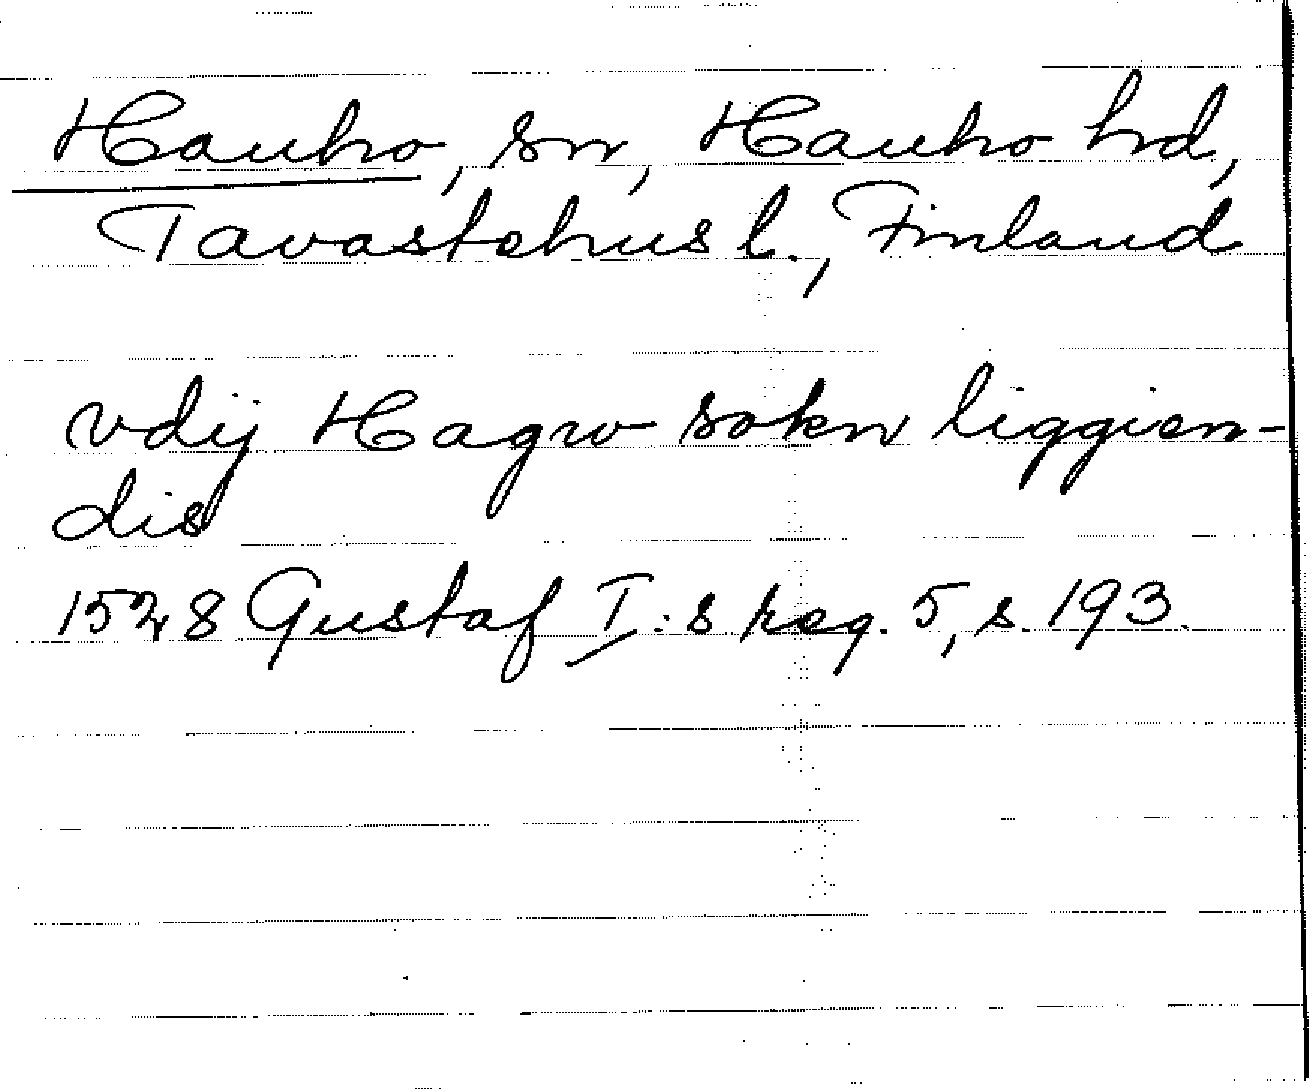 Hauho, sn, Hauho hd,
Tavastehus l., Finland
vdij Hagro sokn liggien-
dis
1528 Gustaf I:s reg. 5, s. 193.